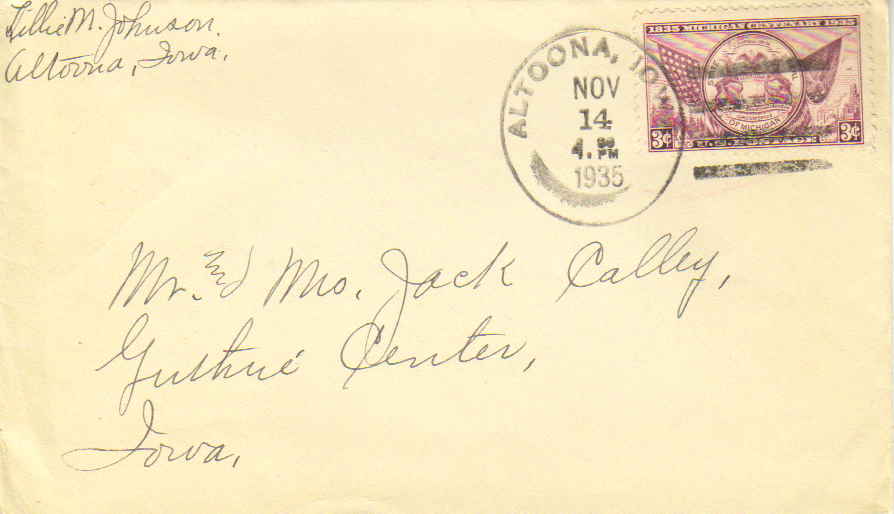 Lillie M. Johnson.
Altoona, Iowa.
ALTOONA, IOWA
NOV
14
4. PM
1935
1835 MICHIGAN CENTENARY 1935
OF MICHIGAN
3¢ U.S. POSTAGE 3¢
Mr. and Mrs. Jack Calley,
Guthrie Center,
Iowa,